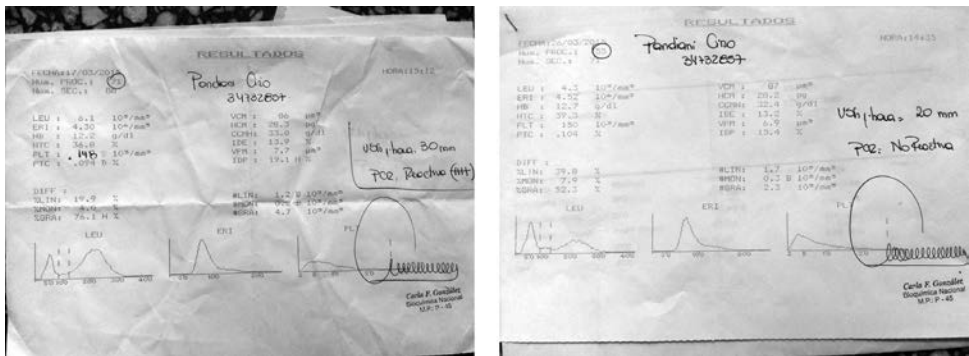 RESULTADOS
FECHA:17/03/2015
HORA:15:12
Num. PROC.: 71
Num. SEC.: 80
Pandiani Ciro
34732807
LEU : 6.1 10³/mm³
ERI : 4.30 10⁶/mm³
HB : 12.2 g/dl
HTC : 36.8 %
PLT : .148 10³/mm³
PTC : .094 %
VCM : 86 µm³
HCM : 28.3 pg
CCHH: 33.0 g/dl
IDE : 13.9 %
VPM : 7.7 µm³
IDP : 19.1 H %
VSG 1 hora: 30 mm
PCR: Reactiva (+++)
DIFF :
%LIN: 19.9 %
%MON: 4.0 %
%GRA: 76.1 H %
#LIN: 1.2 10³/mm³
#GRA: 4.7 10³/mm³
LEU
ERI
PL
50 100 200 300 400
Carla F. González
Bioquímica Nacional
M.P.: P - 45
RESULTADOS
HORA:14:35
Pandiani Ciro
34732807
LEU : 4.3 10³/mm³
ERI : 4.52 10⁶/mm³
HB : 12.7 g/dl
HTC : 39.3 %
PLT : 150 10³/mm³
PTC : .104 %
VCM : 87 µm³
HCM : 28.2 pg
CCHH: 32.4 g/dl
IDE : 13.2 %
VPM : 6.9 µm³
IDP : 13.4 %
VSG 1 hora = 20 mm
PCR: No Reactiva
DIFF :
%LIN: 39.8 %
%MON: 7.9 %
%GRA: 52.3 %
#LIN: 1.7 10³/mm³
#MON: 0.3 10³/mm³
#GRA: 2.3 10³/mm³
LEU
ERI
Carla F. González
Bioquímica Nacional
M.P.: P - 45